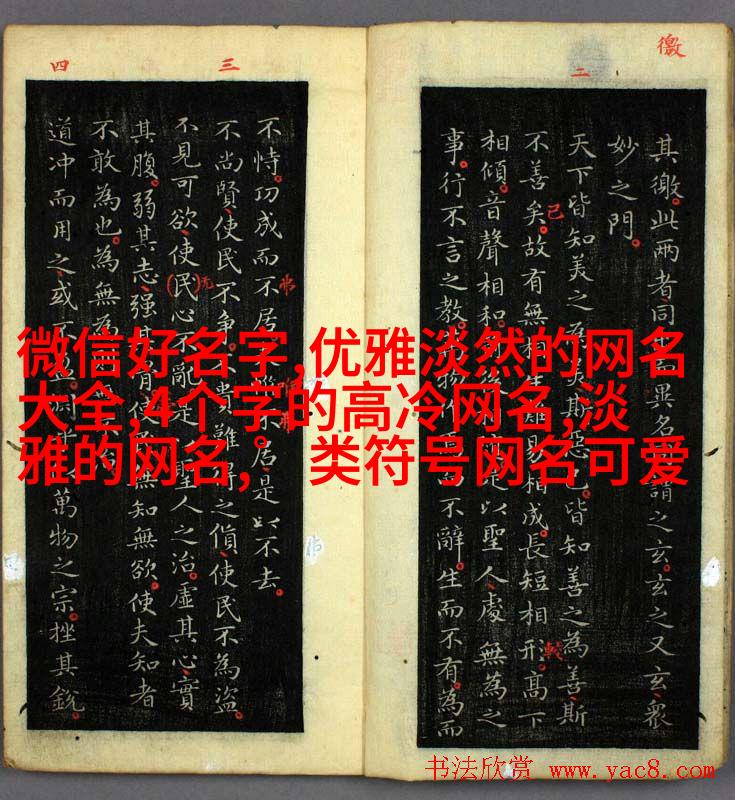 徼
二
其徼此兩者同
妙之門
天下皆知美之
不善矣故有無相
相傾音聲相和
事行不言之教
已
異名
謂之玄玄之又玄眾
斯惡已皆知善之為善斯
相成長短相形高下
是以聖人處無為之
而不辭生而不有為而
較
三
四
不恃功成而不居
居是以不去
不尚賢使民不爭
不貴難得之貨使民不為盜
不見可欲使民心不亂是
聖人之治虛其心實
其腹弱其志强其
骨使
無知無欲使夫知者
不敢為也為無為
道冲而用之或不
萬物之宗挫其銳
微信好名字,优雅淡然的网名
大全,4个字的高冷网名,淡
雅的网名, 类符号网名可爱
书法欣赏 www.yac8.com